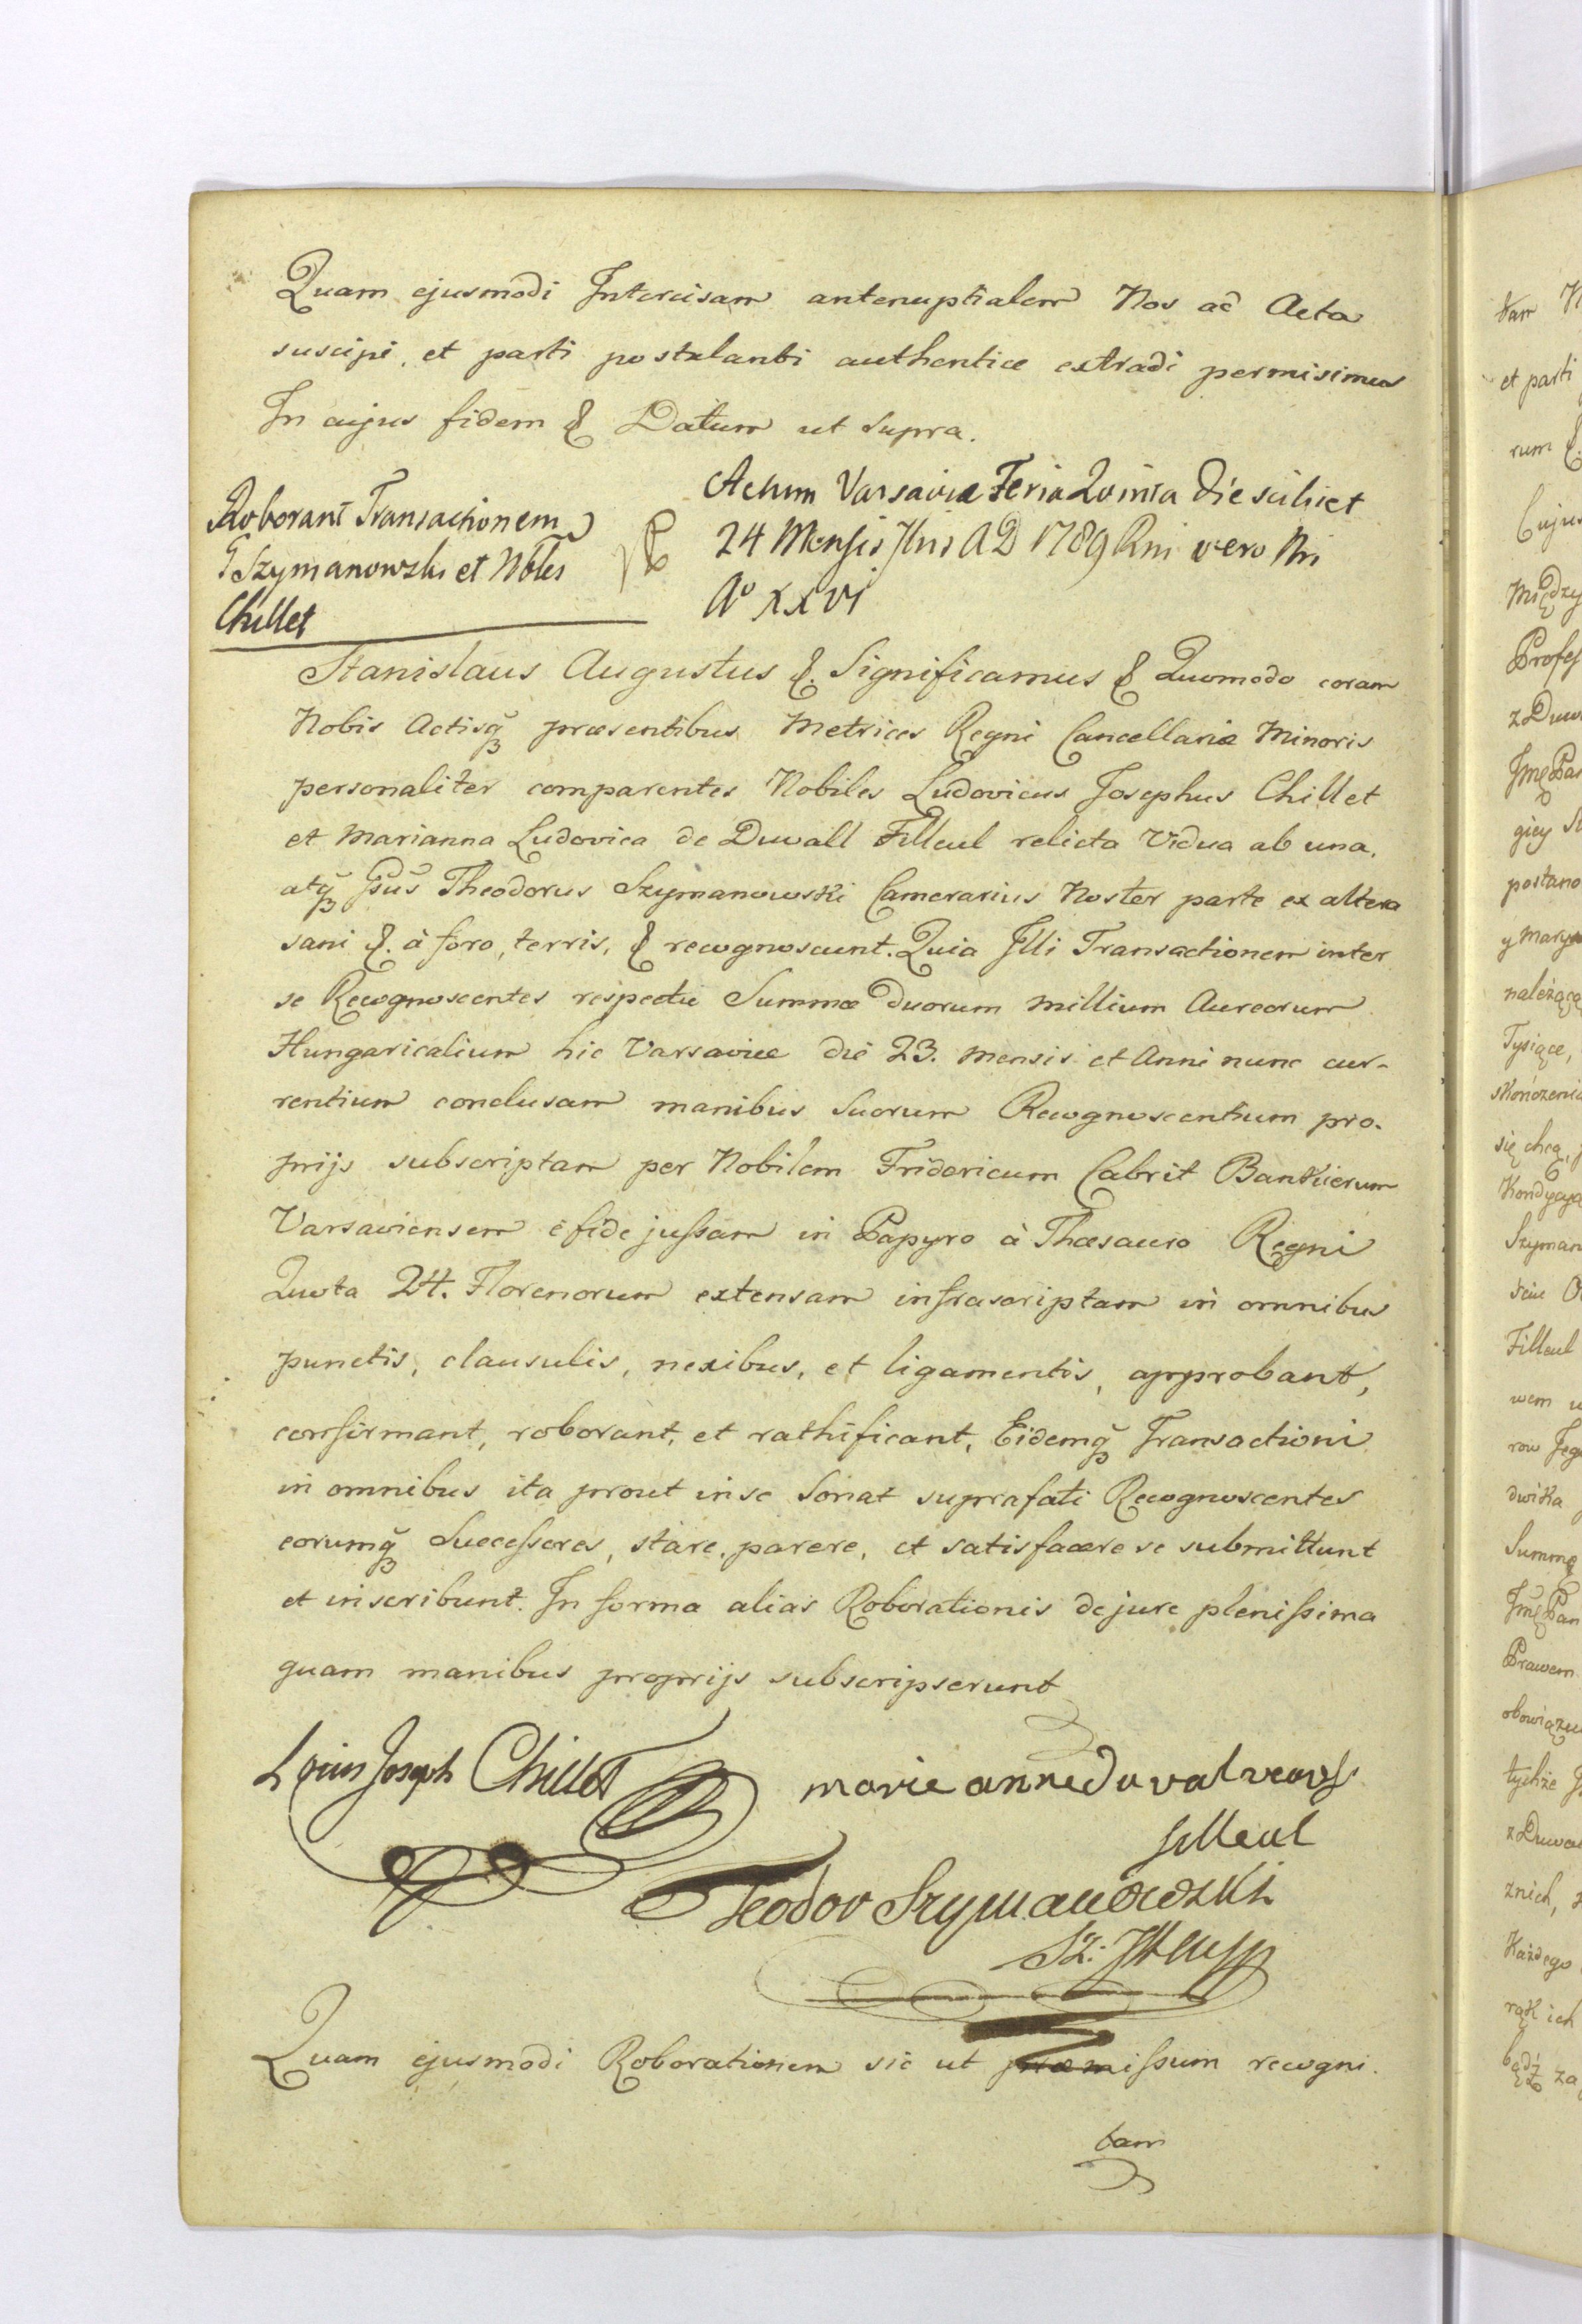 Quam ejusmodi Intercisam antenuptialem Nos ad Acta
suscipi, et parti postulanti authentice extradi permisimus
In cujus fidem &. Datum ut supra.
Roborant Transactionem
G Szymanowski et Nbles
Chillet
Actum Varsaviæ Feria Quinta Die scilicet
24 Mensis 7bris AD 1789 Rni vero Nri
Aº XXVI
Stanislaus Augustus &. Significamus & Quomodo coram
Nobis Actisq̃ præsentibus Metrices Regni Cancellariæ Minoris
personaliter comparentes Nobiles Ludovicus Josephus Chillet
et Marianna Ludovica de Duwall Filleul relicta Vidua ab una,
atq̃ Gsus Theodorus Szymanowski Camerarius Noster parte ex altera
sani &. à foro, terris, & recognoscunt. Quia Illi Transactionem inter
se Recognoscentes respectu Summæ duorum millium Aureorum
Hungaricalium hic Varsaviæ die 23. mensis et Anni nunc cur-
rentium conclusam manibus suorum Recognoscentium pro-
prijs subscriptam per Nobilem Fridericum Cabrit Bankierum
Varsaviensem efidejussam in Papyro à Thesauro Regni
Quota 24. Florenorum extensam infrascriptam in omnibus
punctis, clausulis, nexibus, et ligamentis, approbant,
confirmant, roborant, et rathificant, Eidemq̃ Transactioni
in omnibus ita prout in se sonat suprafati Recognoscentes
eorumq̃ Successores, stare, parere, et satisfacere se submittunt
et inscribunt. In forma alias Roborationis de jure plenissima
quam manibus proprijs subscripserunt
Louis Joseph Chillet
marie anne duval veuve
filleul
Teodor Szymanowski
Quam ejusmodi Roborationem sic ut præmissum recogni-
tam